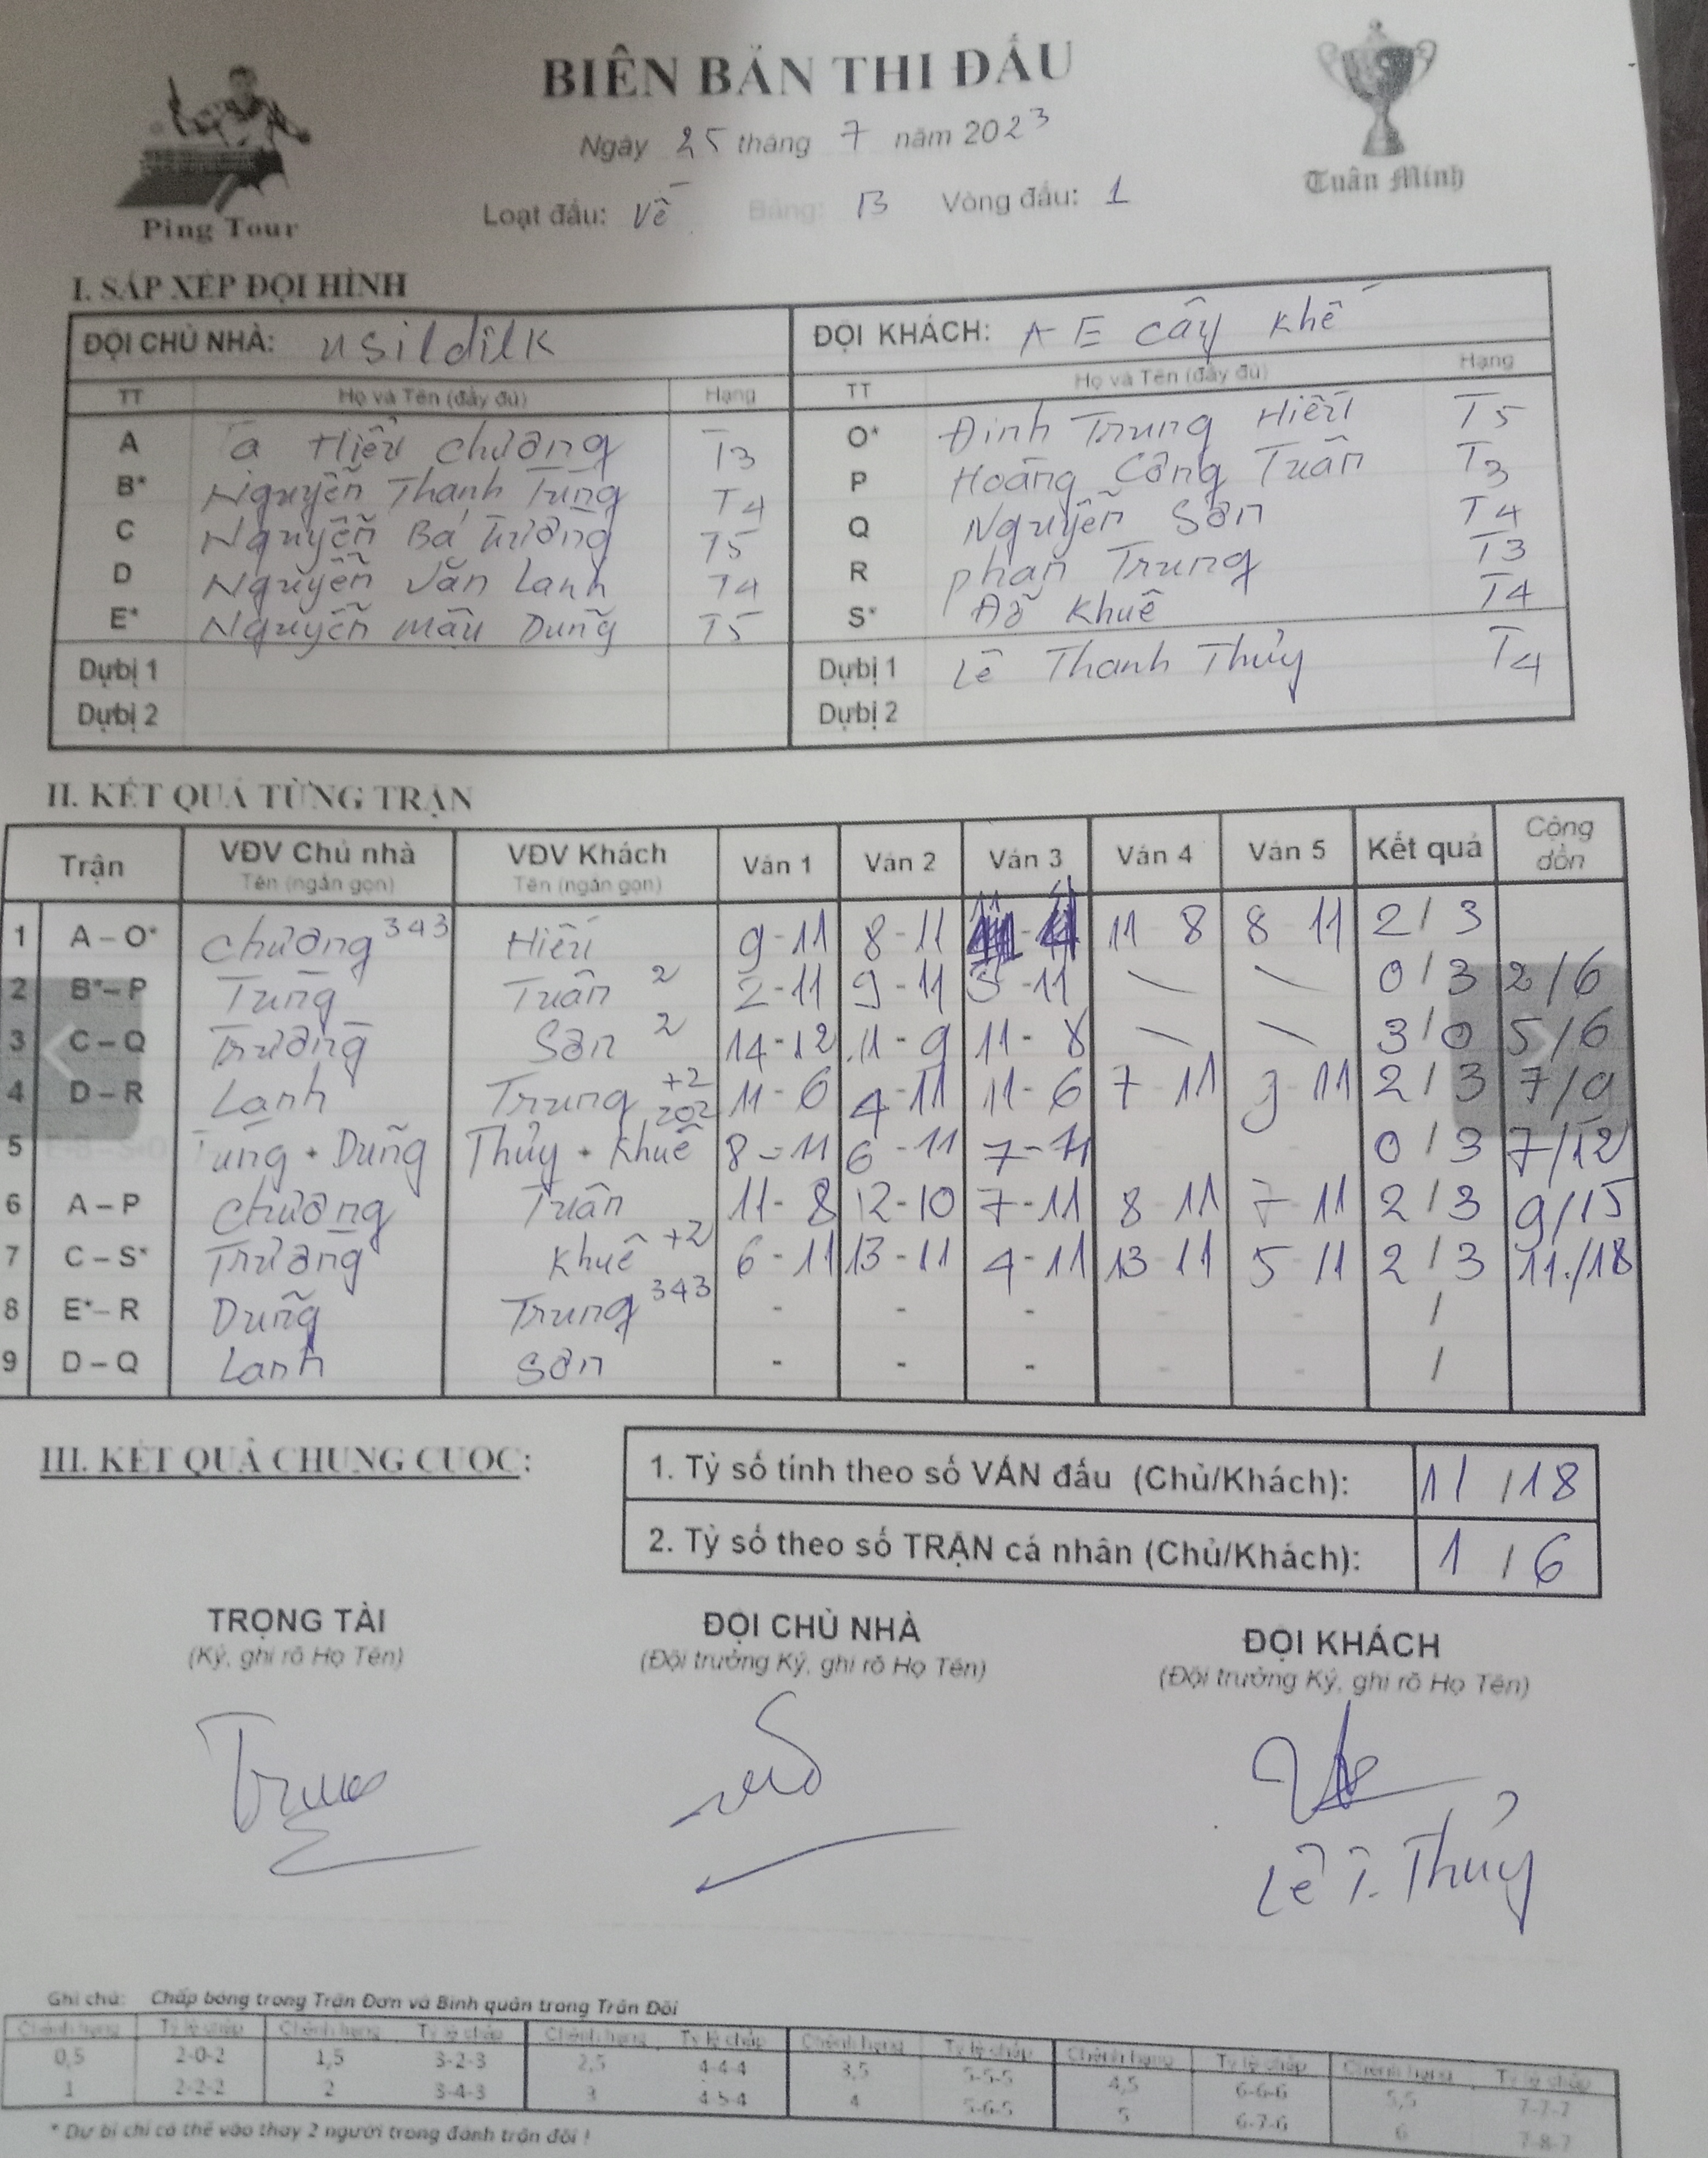 BIÊN BẢN THI ĐẤU
Ngày 25 tháng 7 năm 2023
Loạt đấu: Về Bảng: B Vòng đấu: 1
Ping Tour
Tuân Minh
I. SẮP XẾP ĐỘI HÌNH
ĐỘI CHỦ NHÀ: usildilk ĐỘI KHÁCH: A E cây khế
TT Họ và Tên (đầy đủ) Hạng TT Họ và Tên (đầy đủ) Hạng
A Tạ Hiển Chương T3 O* Đinh Trung Hiếu T5
B* Nguyễn Thanh Tùng T4 P Hoàng Công Tuấn T3
C Nguyễn Bá Trường T5 Q Nguyễn Sơn T4
D Nguyễn Văn Lanh T4 R Phan Trung T3
E* Nguyễn Mậu Dũng T5 S* Đỗ Khuê T4
Dự bị 1 Dự bị 1 Lê Thanh Thủy T4
Dự bị 2 Dự bị 2
II. KẾT QUẢ TỪNG TRẬN
Trận VĐV Chủ nhà Tên (ngắn gọn) VĐV Khách Tên (ngắn gọn) Ván 1 Ván 2 Ván 3 Ván 4 Ván 5 Kết quả Cộng dồn
1 A – O* Chương 343 Hiếu 9-11 8-11 11 8 8-11 2/3
2 B* – P Tùng Tuấn 2 2-11 9-11 5-11 0/3 2/6
3 C – Q Trường Sơn 2 14-12 11-9 11-8 3/0 5/6
4 D – R Lanh Trung +2 11-6 4-11 11-6 7-11 9-11 2/3 7/9
5 E-B – S-O Tùng + Dũng Thủy + Khuê 202 8-11 6-11 7-11 0/3 7/12
6 A – P Chương Tuấn 11-8 12-10 7-11 8-11 7-11 2/3 9/15
7 C – S* Trường Khuê +2 6-11 13-11 4-11 13-11 5-11 2/3 11/18
8 E* – R Dũng Trung 343 - - - - - /
9 D – Q Lanh Sơn - - - - - /
III. KẾT QUẢ CHUNG CUỘC:
1. Tỷ số tính theo số VÁN đấu (Chủ/Khách): 11 / 18
2. Tỷ số theo số TRẬN cá nhân (Chủ/Khách): 1 / 6
TRỌNG TÀI ĐỘI CHỦ NHÀ ĐỘI KHÁCH
(Ký, ghi rõ Họ Tên) (Đội trưởng Ký, ghi rõ Họ Tên) (Đội trưởng Ký, ghi rõ Họ Tên)
Lê T. Thủy
Ghi chú: Chấp bóng trong Trận Đơn và Bình quân trong Trận Đôi
Chênh hạng Tỷ lệ chấp Chênh hạng Tỷ lệ chấp Chênh hạng Tỷ lệ chấp Chênh hạng Tỷ lệ chấp Chênh hạng Tỷ lệ chấp Chênh hạng Tỷ lệ chấp
0,5 2-0-2 1,5 3-2-3 2,5 4-4-4 3,5 5-5-5 4,5 6-6-6 5,5 7-7-7
1 2-2-2 2 3-4-3 3 4-5-4 4 5-6-5 5 6-7-6 6 7-8-7
* Dự bị chỉ có thể vào thay 2 người trong đánh trận đôi !